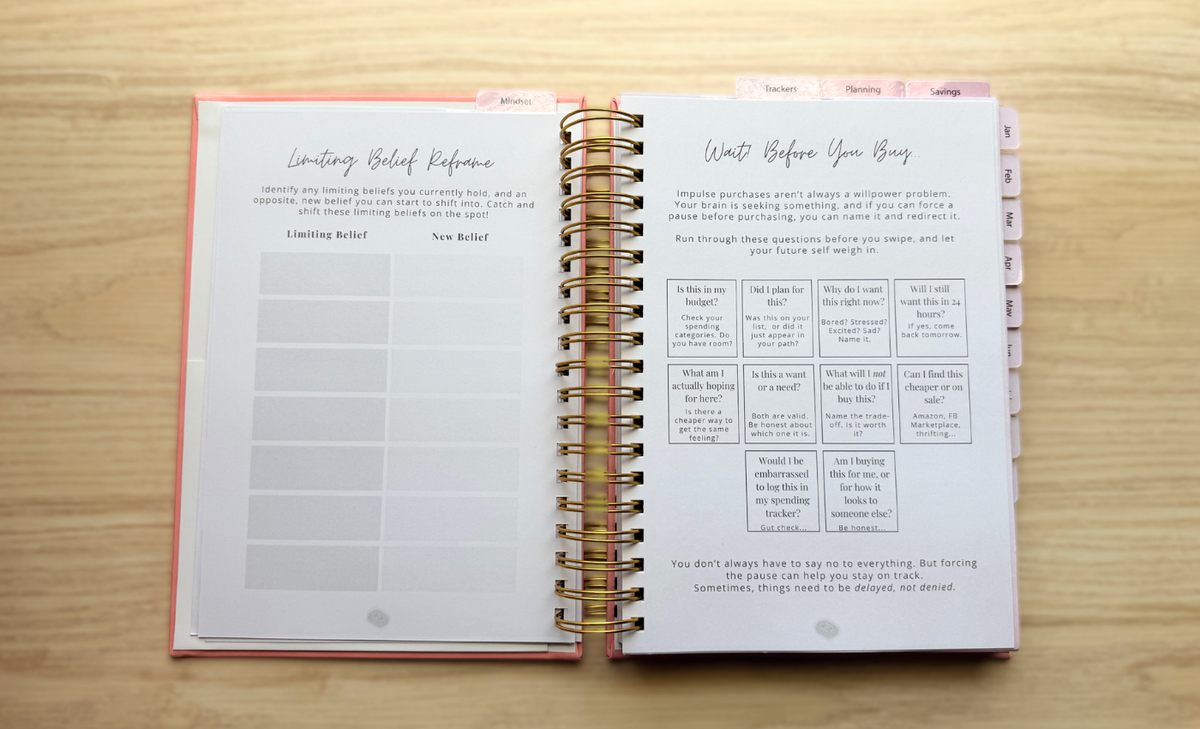 Mindset
Limiting Belief Reframe
Identify any limiting beliefs you currently hold, and an
opposite, new belief you can start to shift into. Catch and
shift these limiting beliefs on the spot!
Limiting Belief
New Belief
Trackers
Planning
Savings
Wait! Before You Buy...
Impulse purchases aren't always a willpower problem.
Your brain is seeking something, and if you can force a
pause before purchasing, you can name it and redirect it.
Run through these questions before you swipe, and let
your future self weigh in.
Is this in my
budget?
Check your
spending
categories. Do
you have room?
Did I plan for
this?
Was this on your
list, or did it
just appear in
your path?
Why do I want
this right now?
Bored? Stressed?
Excited? Sad?
Name it.
Will I still
want this in 24
hours?
If yes, come
back tomorrow.
What am I
actually hoping
for here?
Is there a
cheaper way to
get the same
feeling?
Is this a want
or a need?
Both are valid.
Be honest about
which one it is.
What will I not
be able to do if I
buy this?
Name the trade-
off. Is it worth
it?
Can I find this
cheaper or on
sale?
Amazon, FB
Marketplace,
thrifting...
Would I be
embarrassed
to log this in
my spending
tracker?
Gut check...
Am I buying
this for me, or
for how it
looks to
someone else?
Be honest...
You don't always have to say no to everything. But forcing
the pause can help you stay on track.
Sometimes, things need to be delayed, not denied.
Jan
Feb
Mar
Apr
May
Jun